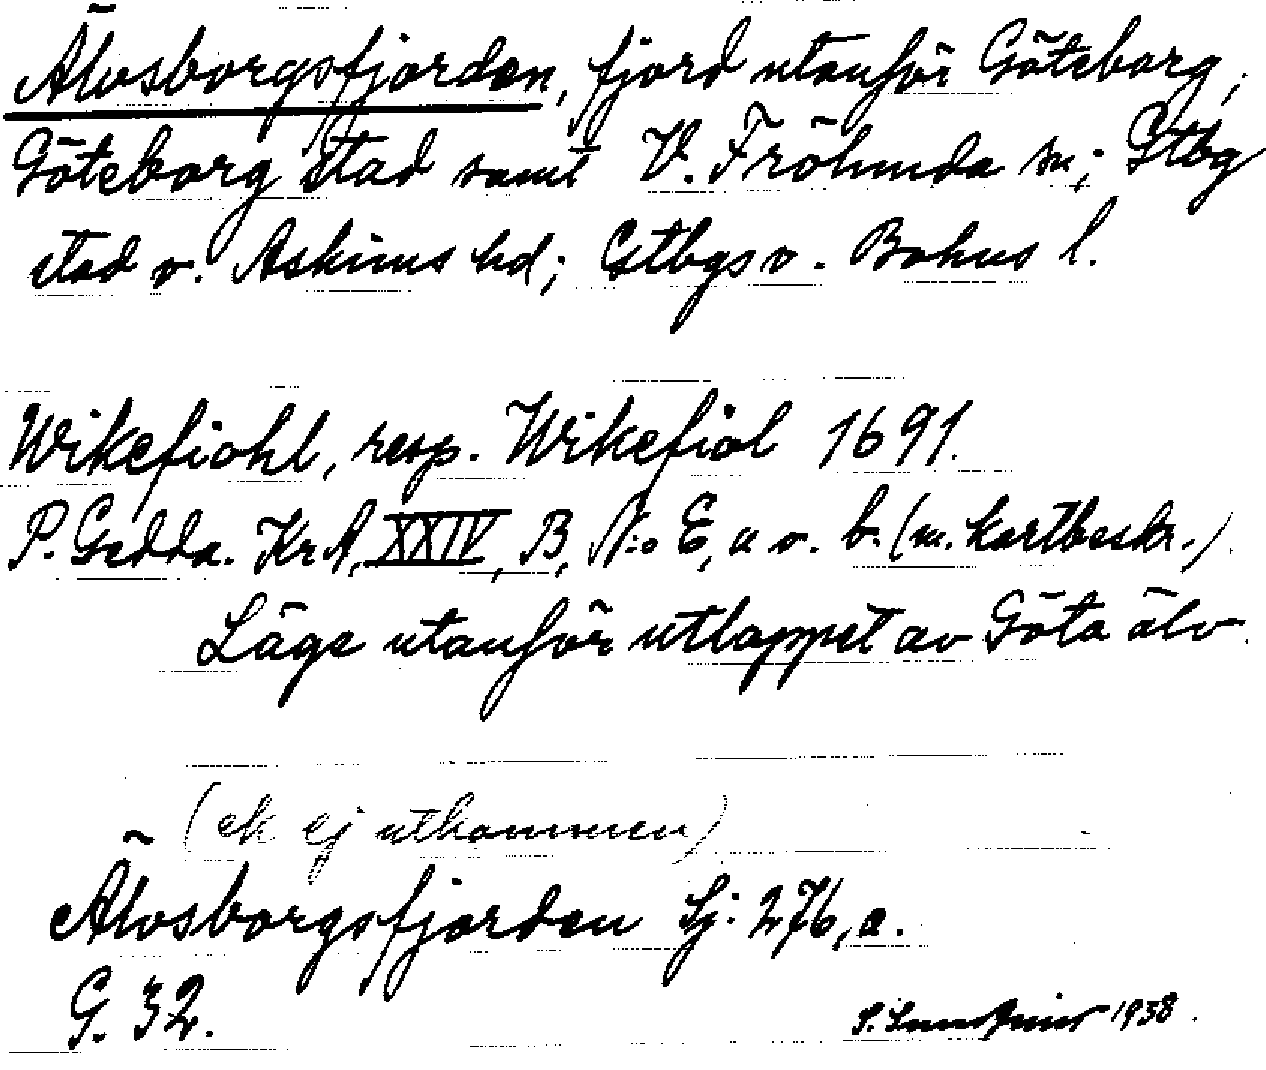 Älvsborgsfjorden, fjord utanför Göteborg,
Göteborg stad samt V. Frölunda sn; Gtbg
stad o. Askims hd; Gtbgs o. Bohus l.
Wikefiohl, resp. Wikefiol 1691.
P. Gedda. KrA, XXIV, B, N:o E, a o. b. (m. kartbeskr.)
Läge utanför utloppet av Göta älv.
(ek ej utkommen)
Älvsborgsfjorden Sj: 276, a.
G. 32.
1938.